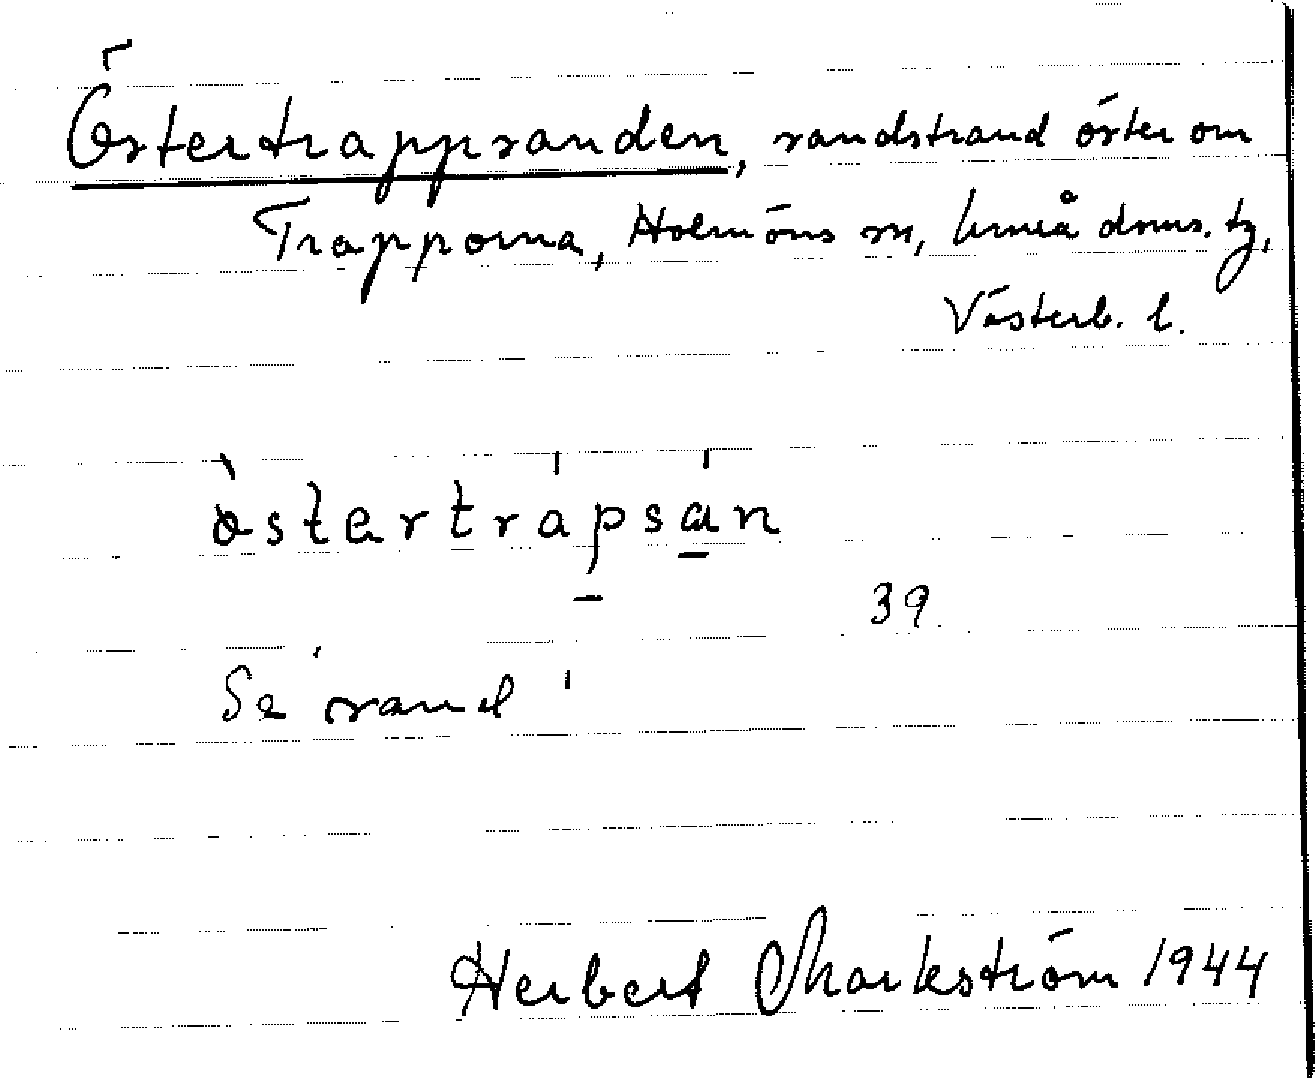 Östertrappranden, randstrand öster om
Trapporna, Holmöns sn, Umeå doms. tg,
Västerb. l.
òstertrápsán
39
Se rand
Herbert Markström 1944